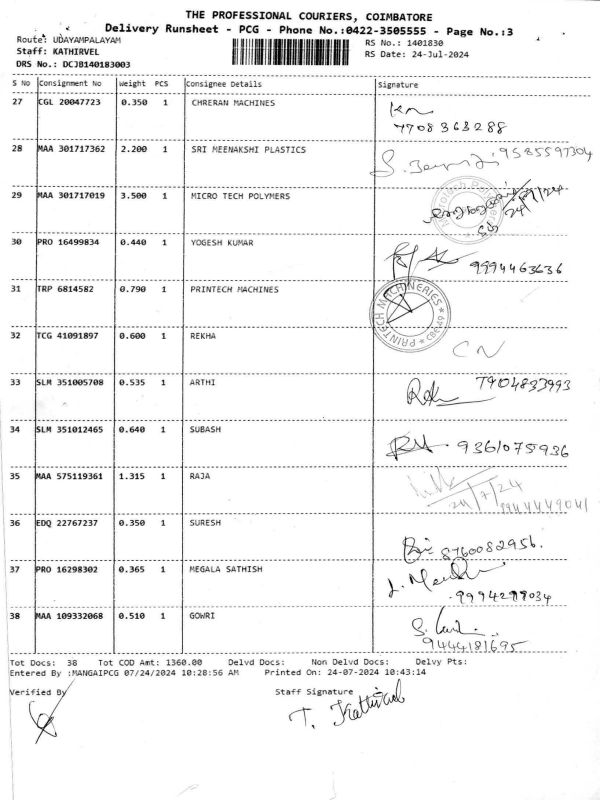 THE PROFESSIONAL COURIERS, COIMBATORE
Delivery Runsheet - PCG - Phone No.:0422-3505555 - Page No.:3
Route: UDAYAMPALAYAM RS No.: 1401830
Staff: KATHIRVEL RS Date: 24-Jul-2024
DRS No.: DCJB140183003
S No Consignment No Weight PCS Consignee Details Signature
27 CGL 20047723 0.350 1 CHRERAN MACHINES
7708363288
28 MAA 301717362 2.200 1 SRI MEENAKSHI PLASTICS 9585597304
29 MAA 301717019 3.500 1 MICRO TECH POLYMERS
30 PRO 16499834 0.440 1 YOGESH KUMAR 9994463636
31 TRP 6814582 0.790 1 PRINTECH MACHINES
PRINTECH MACHINERIES
32 TCG 41091897 0.600 1 REKHA CN
33 SLM 351005708 0.535 1 ARTHI 7904833993
34 SLM 351012465 0.640 1 SUBASH 9361075936
35 MAA 575119361 1.315 1 RAJA
24/7/24
36 EDQ 22767237 0.350 1 SURESH 8760082956.
37 PRO 16298302 0.365 1 MEGALA SATHISH
38 MAA 109332068 0.510 1 GOWRI
9444181695
Tot Docs: 38 Tot COD Amt: 1360.00 Delvd Docs: Non Delvd Docs: Delvy Pts:
Entered By :MANGAIPCG 07/24/2024 10:28:56 AM Printed On: 24-07-2024 10:43:14
Verified By Staff Signature
T. Kathirvel